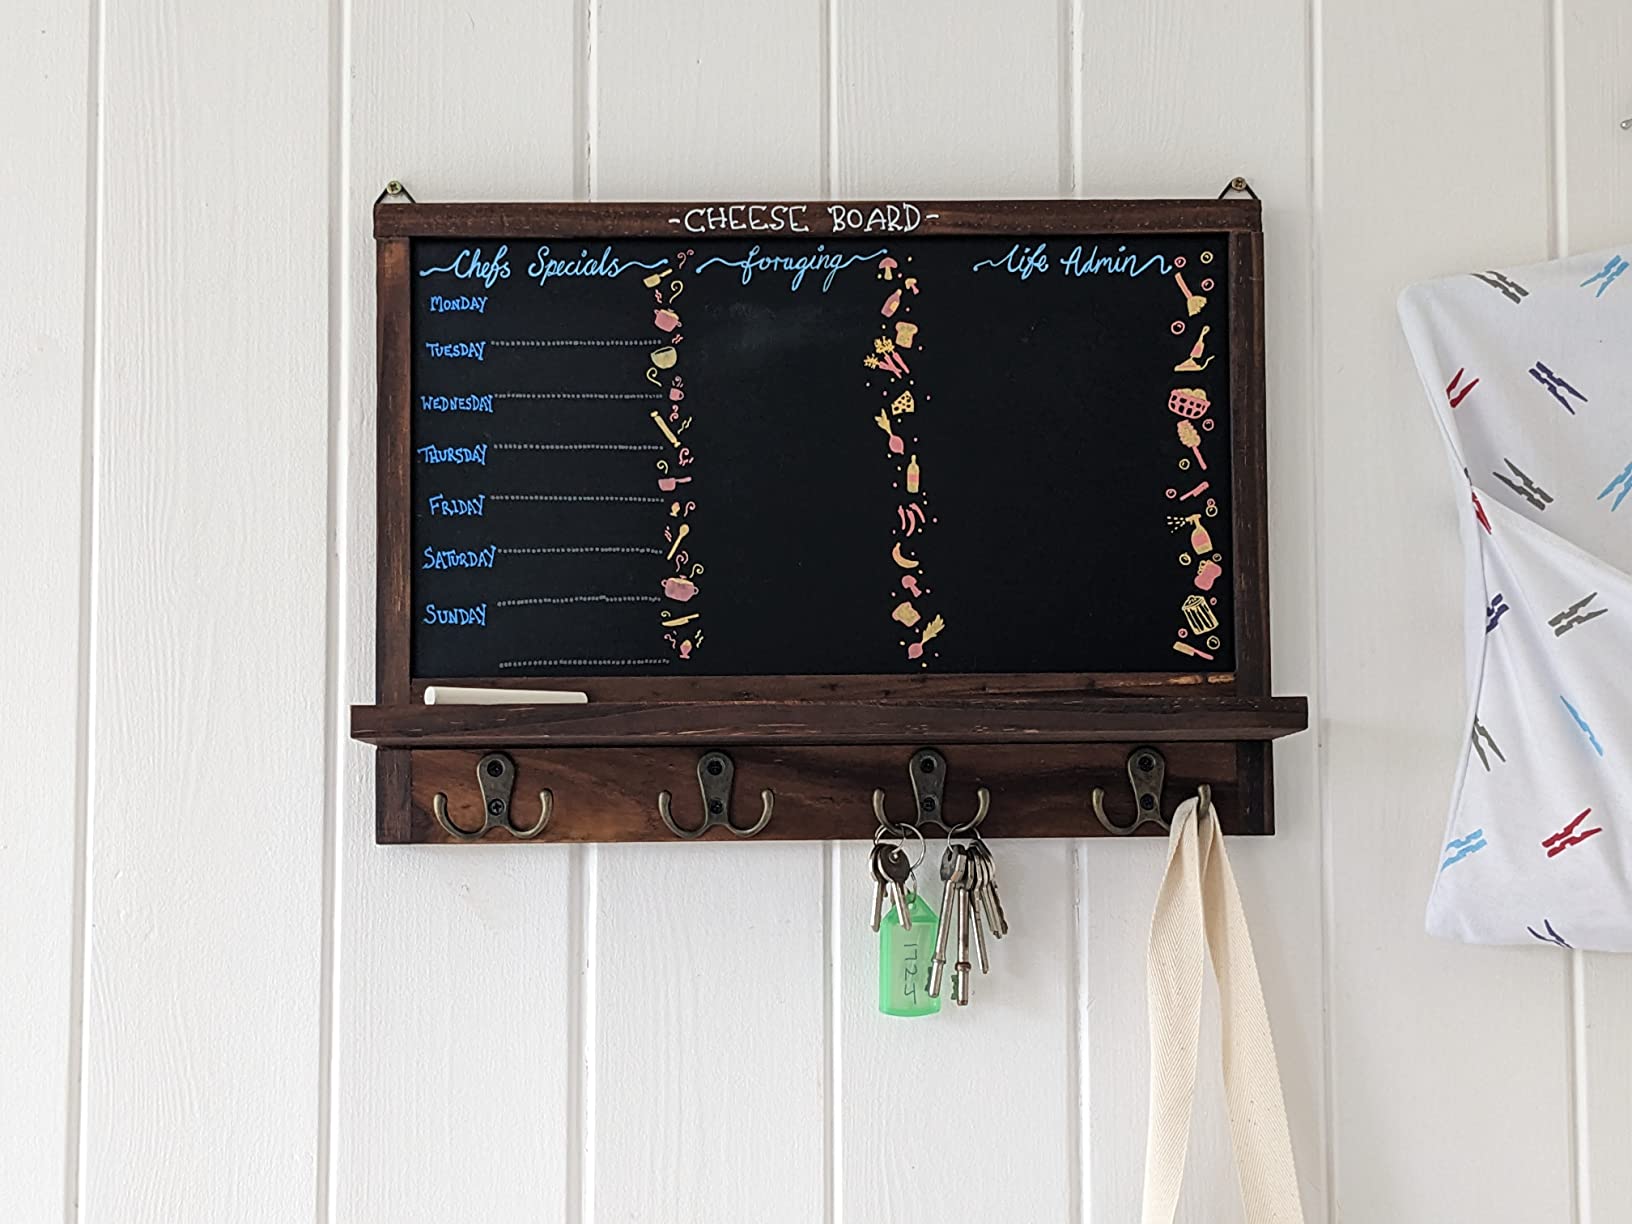 -CHEESE BOARD-
Chefs Specials
foraging
Life Admin
MONDAY
TUESDAY
WEDNESDAY
THURSDAY
FRIDAY
SATURDAY
SUNDAY